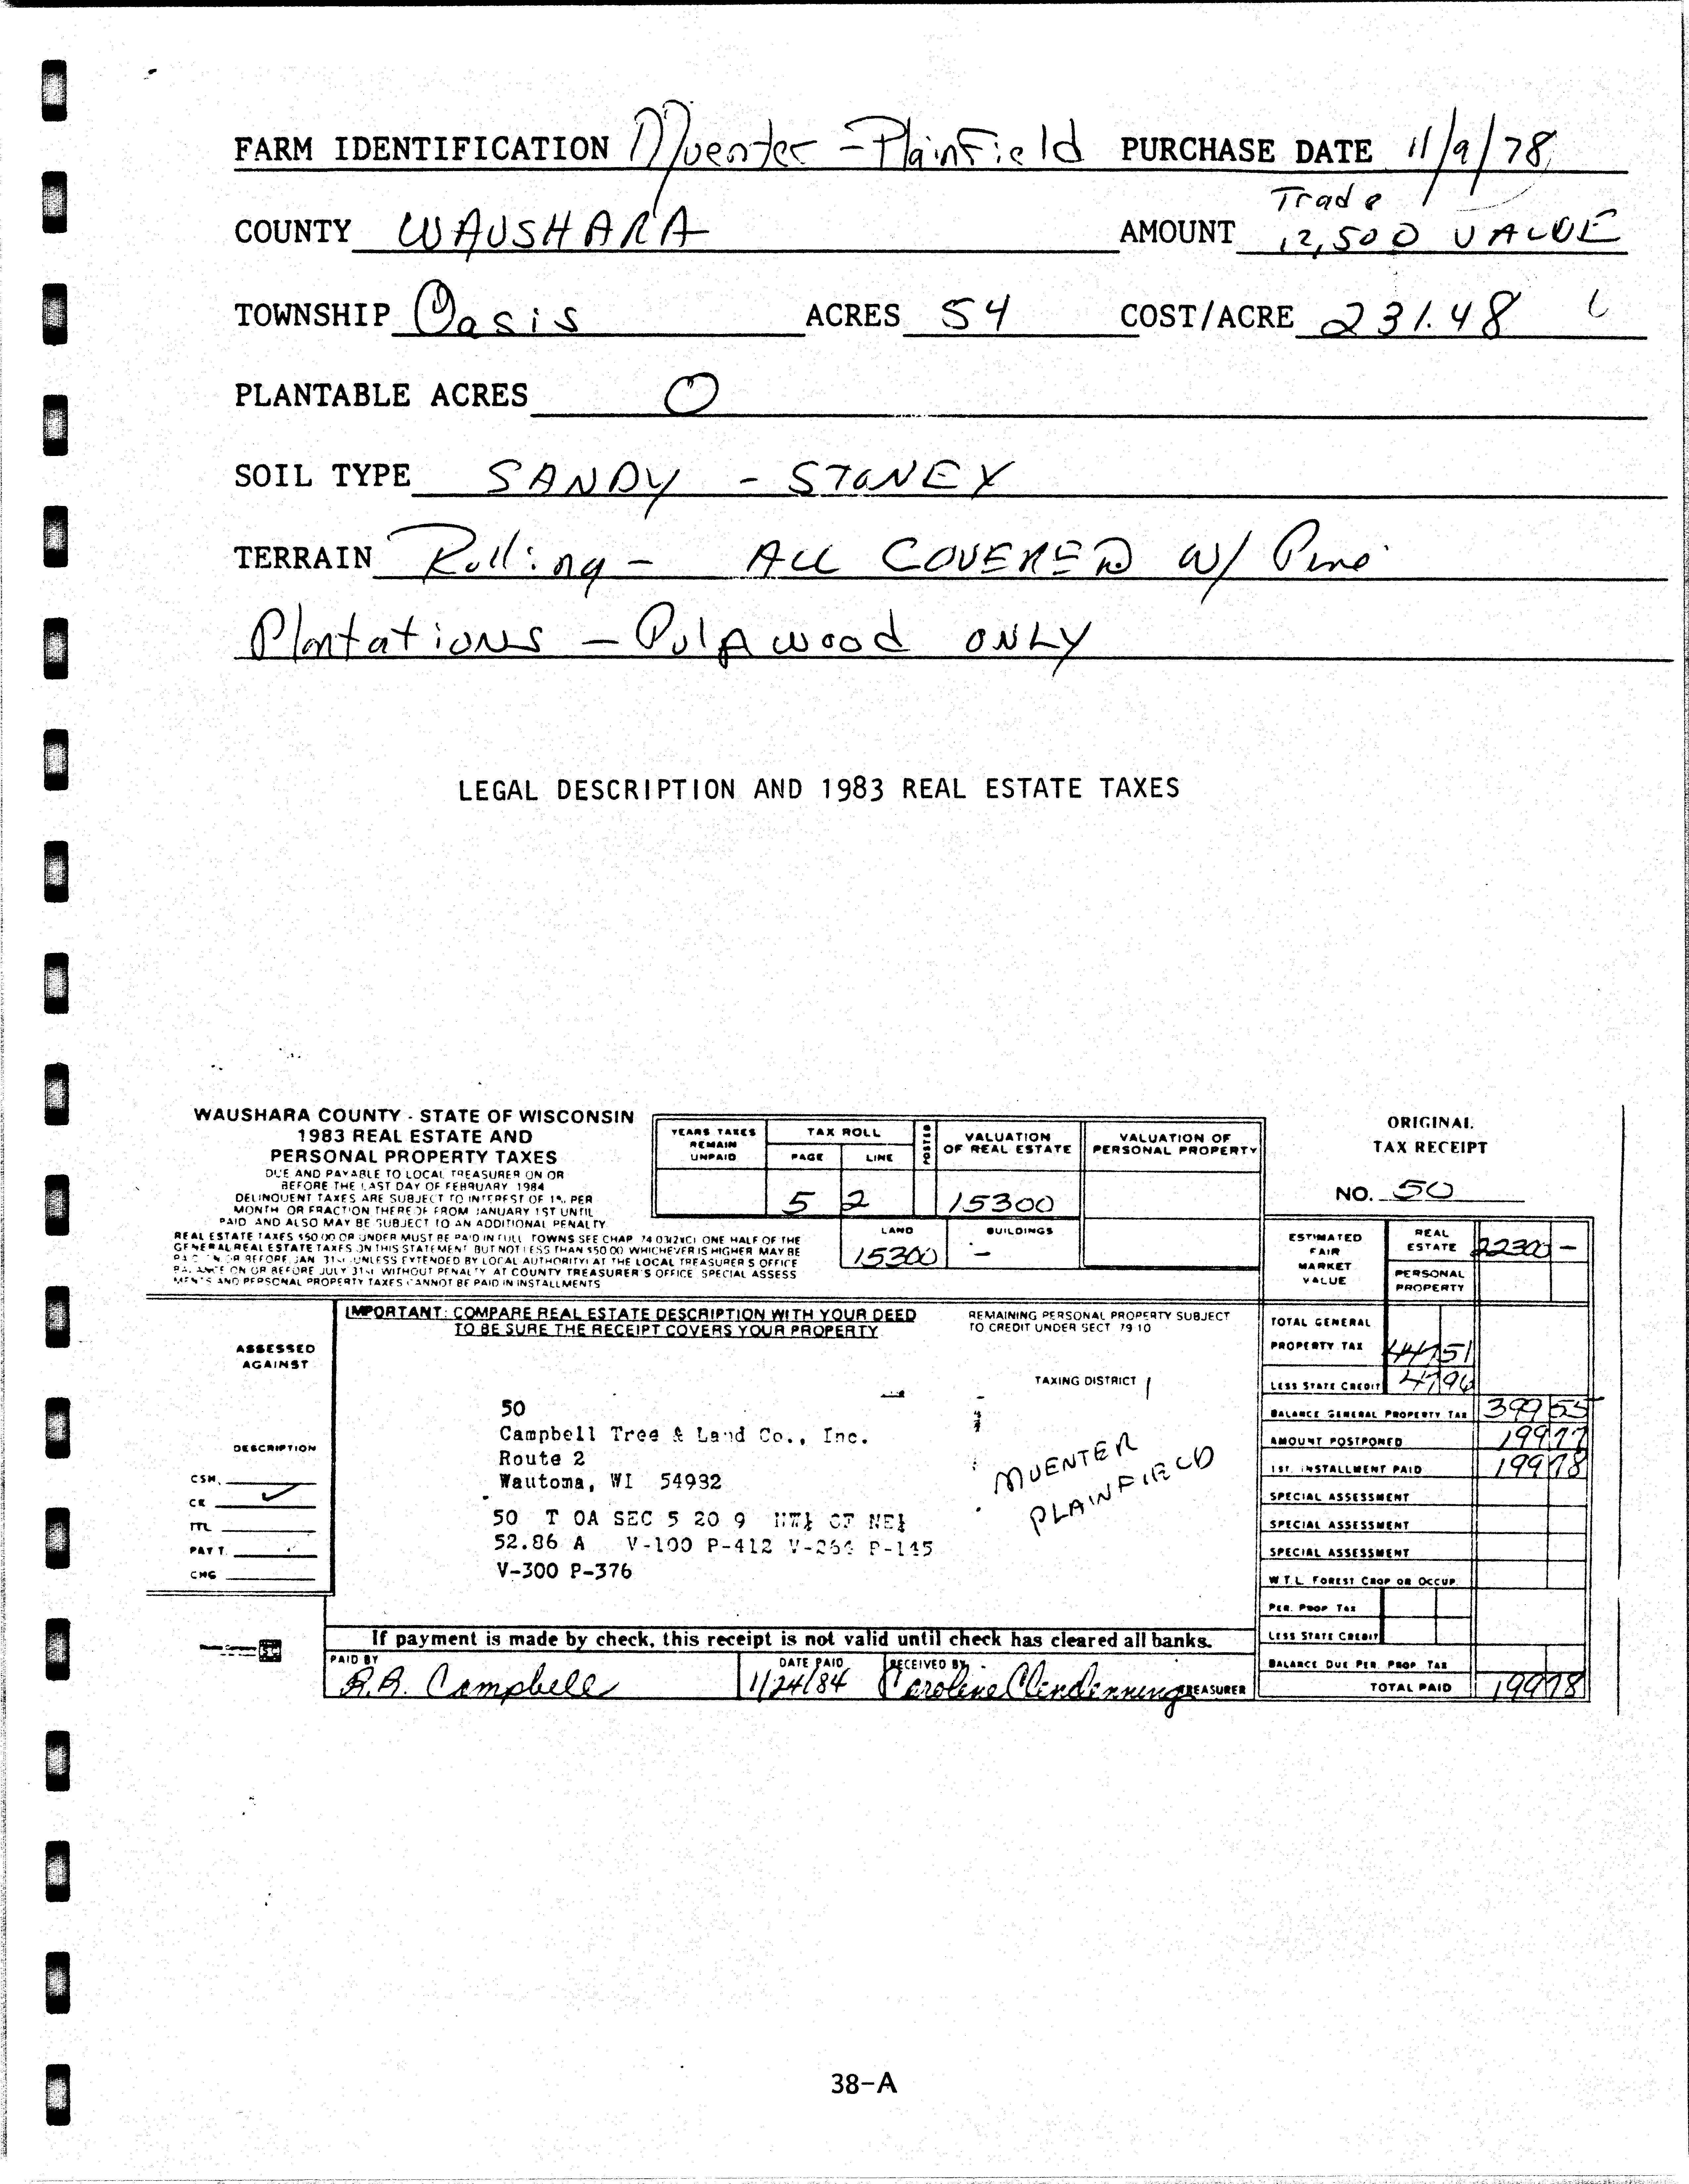 FARM IDENTIFICATION Muenter - Plainfield PURCHASE DATE 11/9/78
Trade
COUNTY WAUSHARA AMOUNT 12,500 VALUE
TOWNSHIP Oasis ACRES 54 COST/ACRE 231.48
PLANTABLE ACRES 0
SOIL TYPE SANDY - STONEY
TERRAIN Rolling - ALL COVERED W/ Pine
Plantations - Pulpwood ONLY
LEGAL DESCRIPTION AND 1983 REAL ESTATE TAXES
WAUSHARA COUNTY - STATE OF WISCONSIN
1983 REAL ESTATE AND
PERSONAL PROPERTY TAXES
DUE AND PAYABLE TO LOCAL TREASURER ON OR
BEFORE THE LAST DAY OF FEBRUARY 1984
DELINQUENT TAXES ARE SUBJECT TO INTEREST OF 1% PER
MONTH OR FRACTION THEREOF FROM JANUARY 1ST UNTIL
PAID AND ALSO MAY BE SUBJECT TO AN ADDITIONAL PENALTY
REAL ESTATE TAXES $50.00 OR UNDER MUST BE PAID IN FULL TOWNS SEE CHAP 74 ONE HALF OF THE
GENERAL REAL ESTATE TAXES ON THIS STATEMENT BUT NOT LESS THAN $50.00 WHICHEVER IS HIGHER MAY BE
PAID ON OR BEFORE JAN 31st UNLESS EXTENDED BY LOCAL AUTHORITY AT THE LOCAL TREASURER'S OFFICE
BALANCE ON OR BEFORE JULY 31st WITHOUT PENALTY AT COUNTY TREASURER'S OFFICE SPECIAL ASSESS
MENTS AND PERSONAL PROPERTY TAXES CANNOT BE PAID IN INSTALLMENTS
YEARS TAXES REMAIN UNPAID
TAX ROLL
PAGE LINE
POSTED
VALUATION OF REAL ESTATE
VALUATION OF PERSONAL PROPERTY
5 2 15300
LAND BUILDINGS
15300 -
ORIGINAL
TAX RECEIPT
NO. 50
ESTIMATED FAIR MARKET VALUE
REAL ESTATE 22300 -
PERSONAL PROPERTY
IMPORTANT: COMPARE REAL ESTATE DESCRIPTION WITH YOUR DEED
TO BE SURE THE RECEIPT COVERS YOUR PROPERTY
REMAINING PERSONAL PROPERTY SUBJECT
TO CREDIT UNDER SECT 79 10
TAXING DISTRICT
ASSESSED
AGAINST
DESCRIPTION
CSM.
CK ✓
TTL
PAY T.
CHG
50
Campbell Tree & Land Co., Inc.
Route 2
Wautoma, WI 54982
50 T OA SEC 5 20 9 NW¼ OF NE¼
52.86 A V-100 P-412 V-264 P-145
V-300 P-376
MUENTER
PLAINFIELD
TOTAL GENERAL
PROPERTY TAX 447 51
LESS STATE CREDIT 47 96
BALANCE GENERAL PROPERTY TAX 399 55
AMOUNT POSTPONED 199 77
1ST. INSTALLMENT PAID 199 78
SPECIAL ASSESSMENT
SPECIAL ASSESSMENT
SPECIAL ASSESSMENT
W.T.L. FOREST CROP OR OCCUP.
PER. PROP TAX
LESS STATE CREDIT
BALANCE DUE PER. PROP TAX
TOTAL PAID 199 78
If payment is made by check, this receipt is not valid until check has cleared all banks.
PAID BY R.A. Campbell
DATE PAID 1/24/84
RECEIVED BY Caroline Clendenning TREASURER
38-A